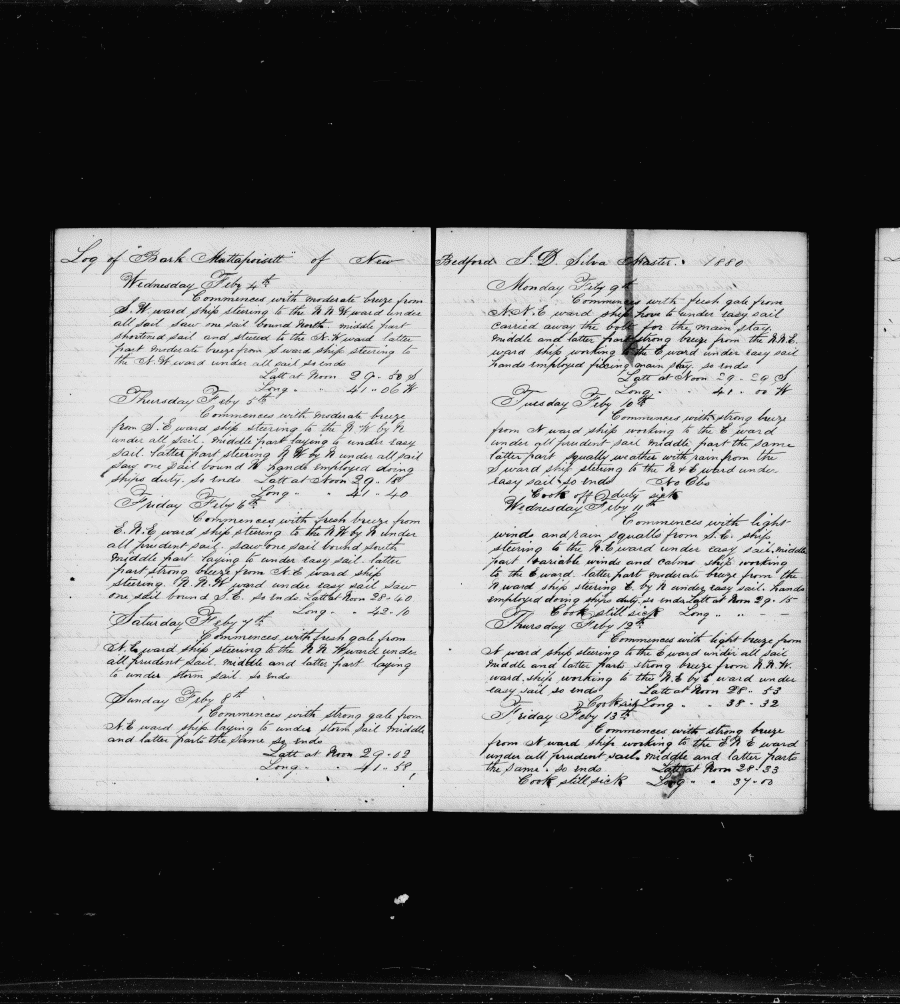 Log of "Bark Mattapoisett" of New
Wednesday Feby 4th
Commences with moderate breeze from
S.W. ward ship steering to the N N W ward under
all sail saw one sail bound North. middle part
shortened sail and steered to the N.W ward latter
part moderate breeze from S ward ship steering to
the N.W ward under all sail so ends
Latt at Noon 29-50 S
Long " " 41-06 W
Thursday Feby 5th
Commences with moderate breeze
from S.E ward ship steering to the N W by N
under all sail. middle part laying to under easy
sail. latter part steering N W by N under all sail
saw one sail bound N hands employed doing
ships duty. so ends Latt at Noon 29-18
Long " " 41-40
Friday Feby 6th
Commences with fresh breeze from
E.N.E ward ship steering to the N W by N under
all prudent sail. saw one sail bound South
middle part laying to under easy sail. latter
part strong breeze from N.E ward ship
steering N.N.W ward under easy sail saw
one sail bound S.E. so ends. Latt at Noon 28-40
Long " " 42-10
Saturday Feby 7th
Commences with fresh gale from
N.E. ward ship steering to the N N W ward under
all prudent sail. middle and latter part laying
to under storm sail. so ends
Sunday Feby 8th
Commences with strong gale from
N.E ward ship laying to under storm sail middle
and latter parts the same so ends
Latt at Noon 29-02
Long " " 41-58
Bedford J. D. Silva Master. 1880
Monday Feby 9th
Commences with fresh gale from
N.N.E ward ship hove to under easy sail
carried away the bolt for the main stay
middle and latter part strong breeze from the N.N.E.
ward ship working to the E ward under easy sail
hands employed fixing main stay. so ends
Latt at Noon 29-29 S
Long " " 41-00 W
Tuesday Feby 10th
Commences with strong breeze
from N ward ship working to the E ward
under all prudent sail middle part the same
latter part squally weather with rain from the
S ward ship steering to the N & E ward under
easy sail so ends No Obs
Cook off duty sick
Wednesday Feby 11th
Commences with light
winds and rain squalls from S.E. ship
steering to the N.E ward under easy sail. middle
part variable winds and calms ship working
to the E ward. latter part moderate breeze from the
N ward ship steering E. by N under easy sail. hands
employed doing ships duty. so ends Latt at Noon 29-15
Cook still sick Long " " - -
Thursday Feby 12th
Commences with light breeze from
N ward ship steering to the E ward under all sail
middle and latter parts strong breeze from N.N.W.
ward. ship working to the N.E by E ward under
easy sail so ends Latt at Noon 28-53
Cook sick Long " " 38-32
Friday Feby 13th
Commences with strong breeze
from N ward ship working to the E N E ward
under all prudent sail. middle and latter parts
the same. so ends. Latt at Noon 28-33
Cook still sick Long " " 37-00